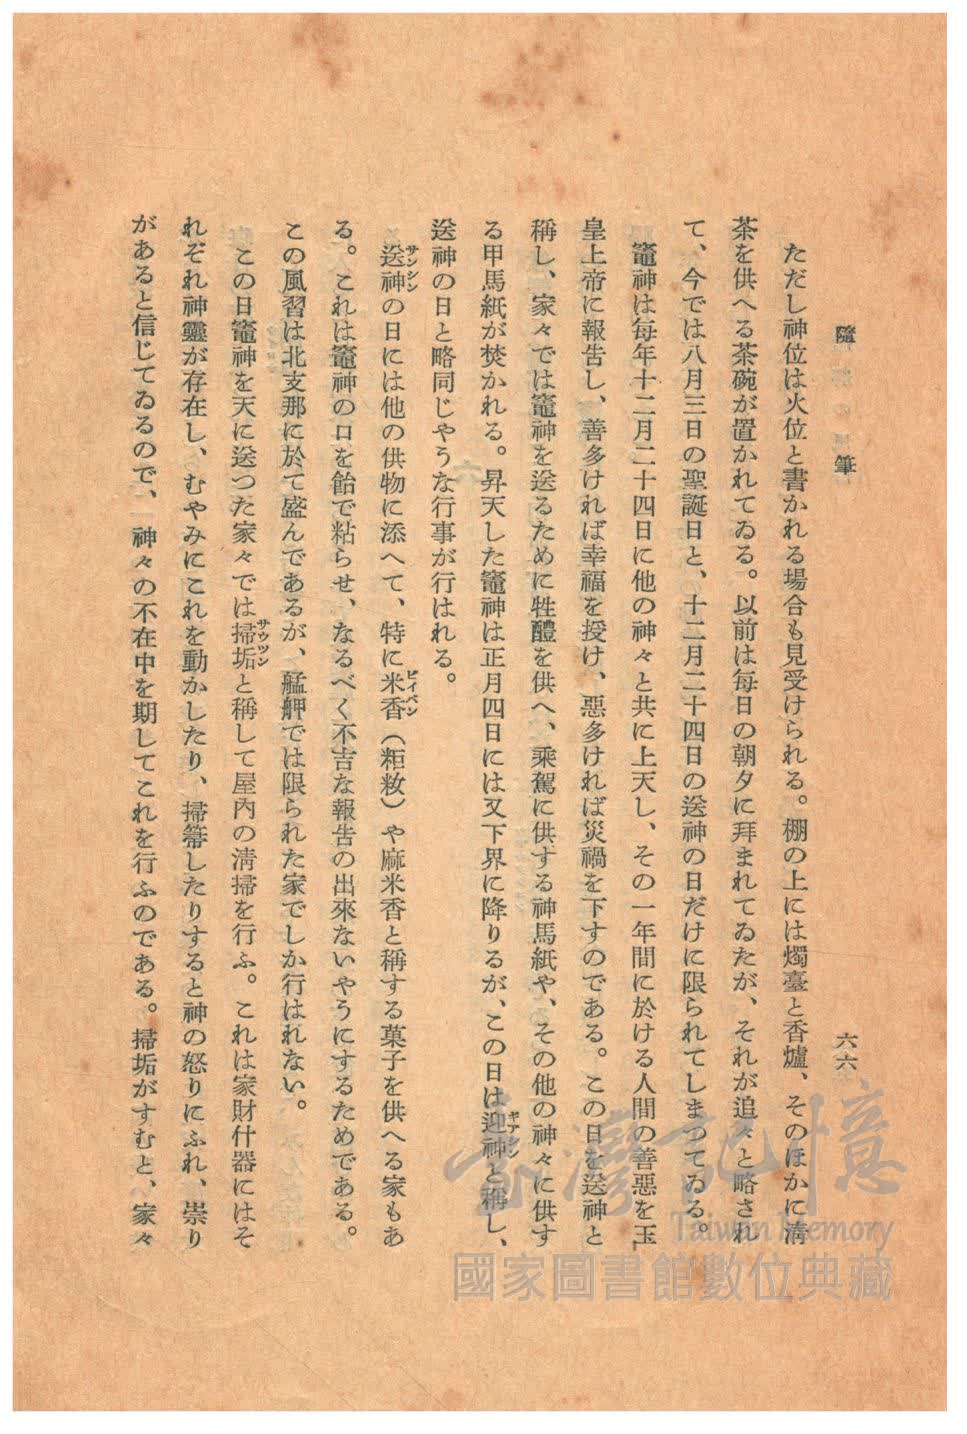 隨筆
六六
ただし神位は火位と書かれる場合も見受けられる。棚の上には燭臺と香爐、そのほかに淸
茶を供へる茶碗が置かれてゐる。以前は每日の朝夕に拜まれてゐたが、それが追々と略され
て、今では八月三日の聖誕日と、十二月二十四日の送神の日だけに限られてしまつてゐる。
竈神は每年十二月二十四日に他の神々と共に上天し、その一年間に於ける人間の善惡を玉
皇上帝に報告し、善多ければ幸福を授け、惡多ければ災禍を下すのである。この日を送神と
稱し、家々では竈神を送るために牲醴を供へ、乘駕に供する神馬紙や、その他の神々に供す
る甲馬紙が焚かれる。昇天した竈神は正月四日には又下界に降りるが、この日は迎神と稱し、
ギアシン
送神の日と略同じやうな行事が行はれる。
送神の日には他の供物に添へて、特に米香（粔籹）や麻米香と稱する菓子を供へる家もあ
サンシン
ビイペン
る。これは竈神の口を飴で粘らせ、なるべく不吉な報告の出來ないやうにするためである。
この風習は北支那に於て盛んであるが、艋舺では限られた家でしか行はれない。
この日竈神を天に送つた家々では掃垢と稱して屋內の淸掃を行ふ。これは家財什器にはそ
サウツン
れぞれ神靈が存在し、むやみにこれを動かしたり、掃箒したりすると神の怒りにふれ、祟り
があると信じてゐるので、神々の不在中を期してこれを行ふのである。掃垢がすむと、家々
臺灣記憶
Taiwan Memory
國家圖書館數位典藏